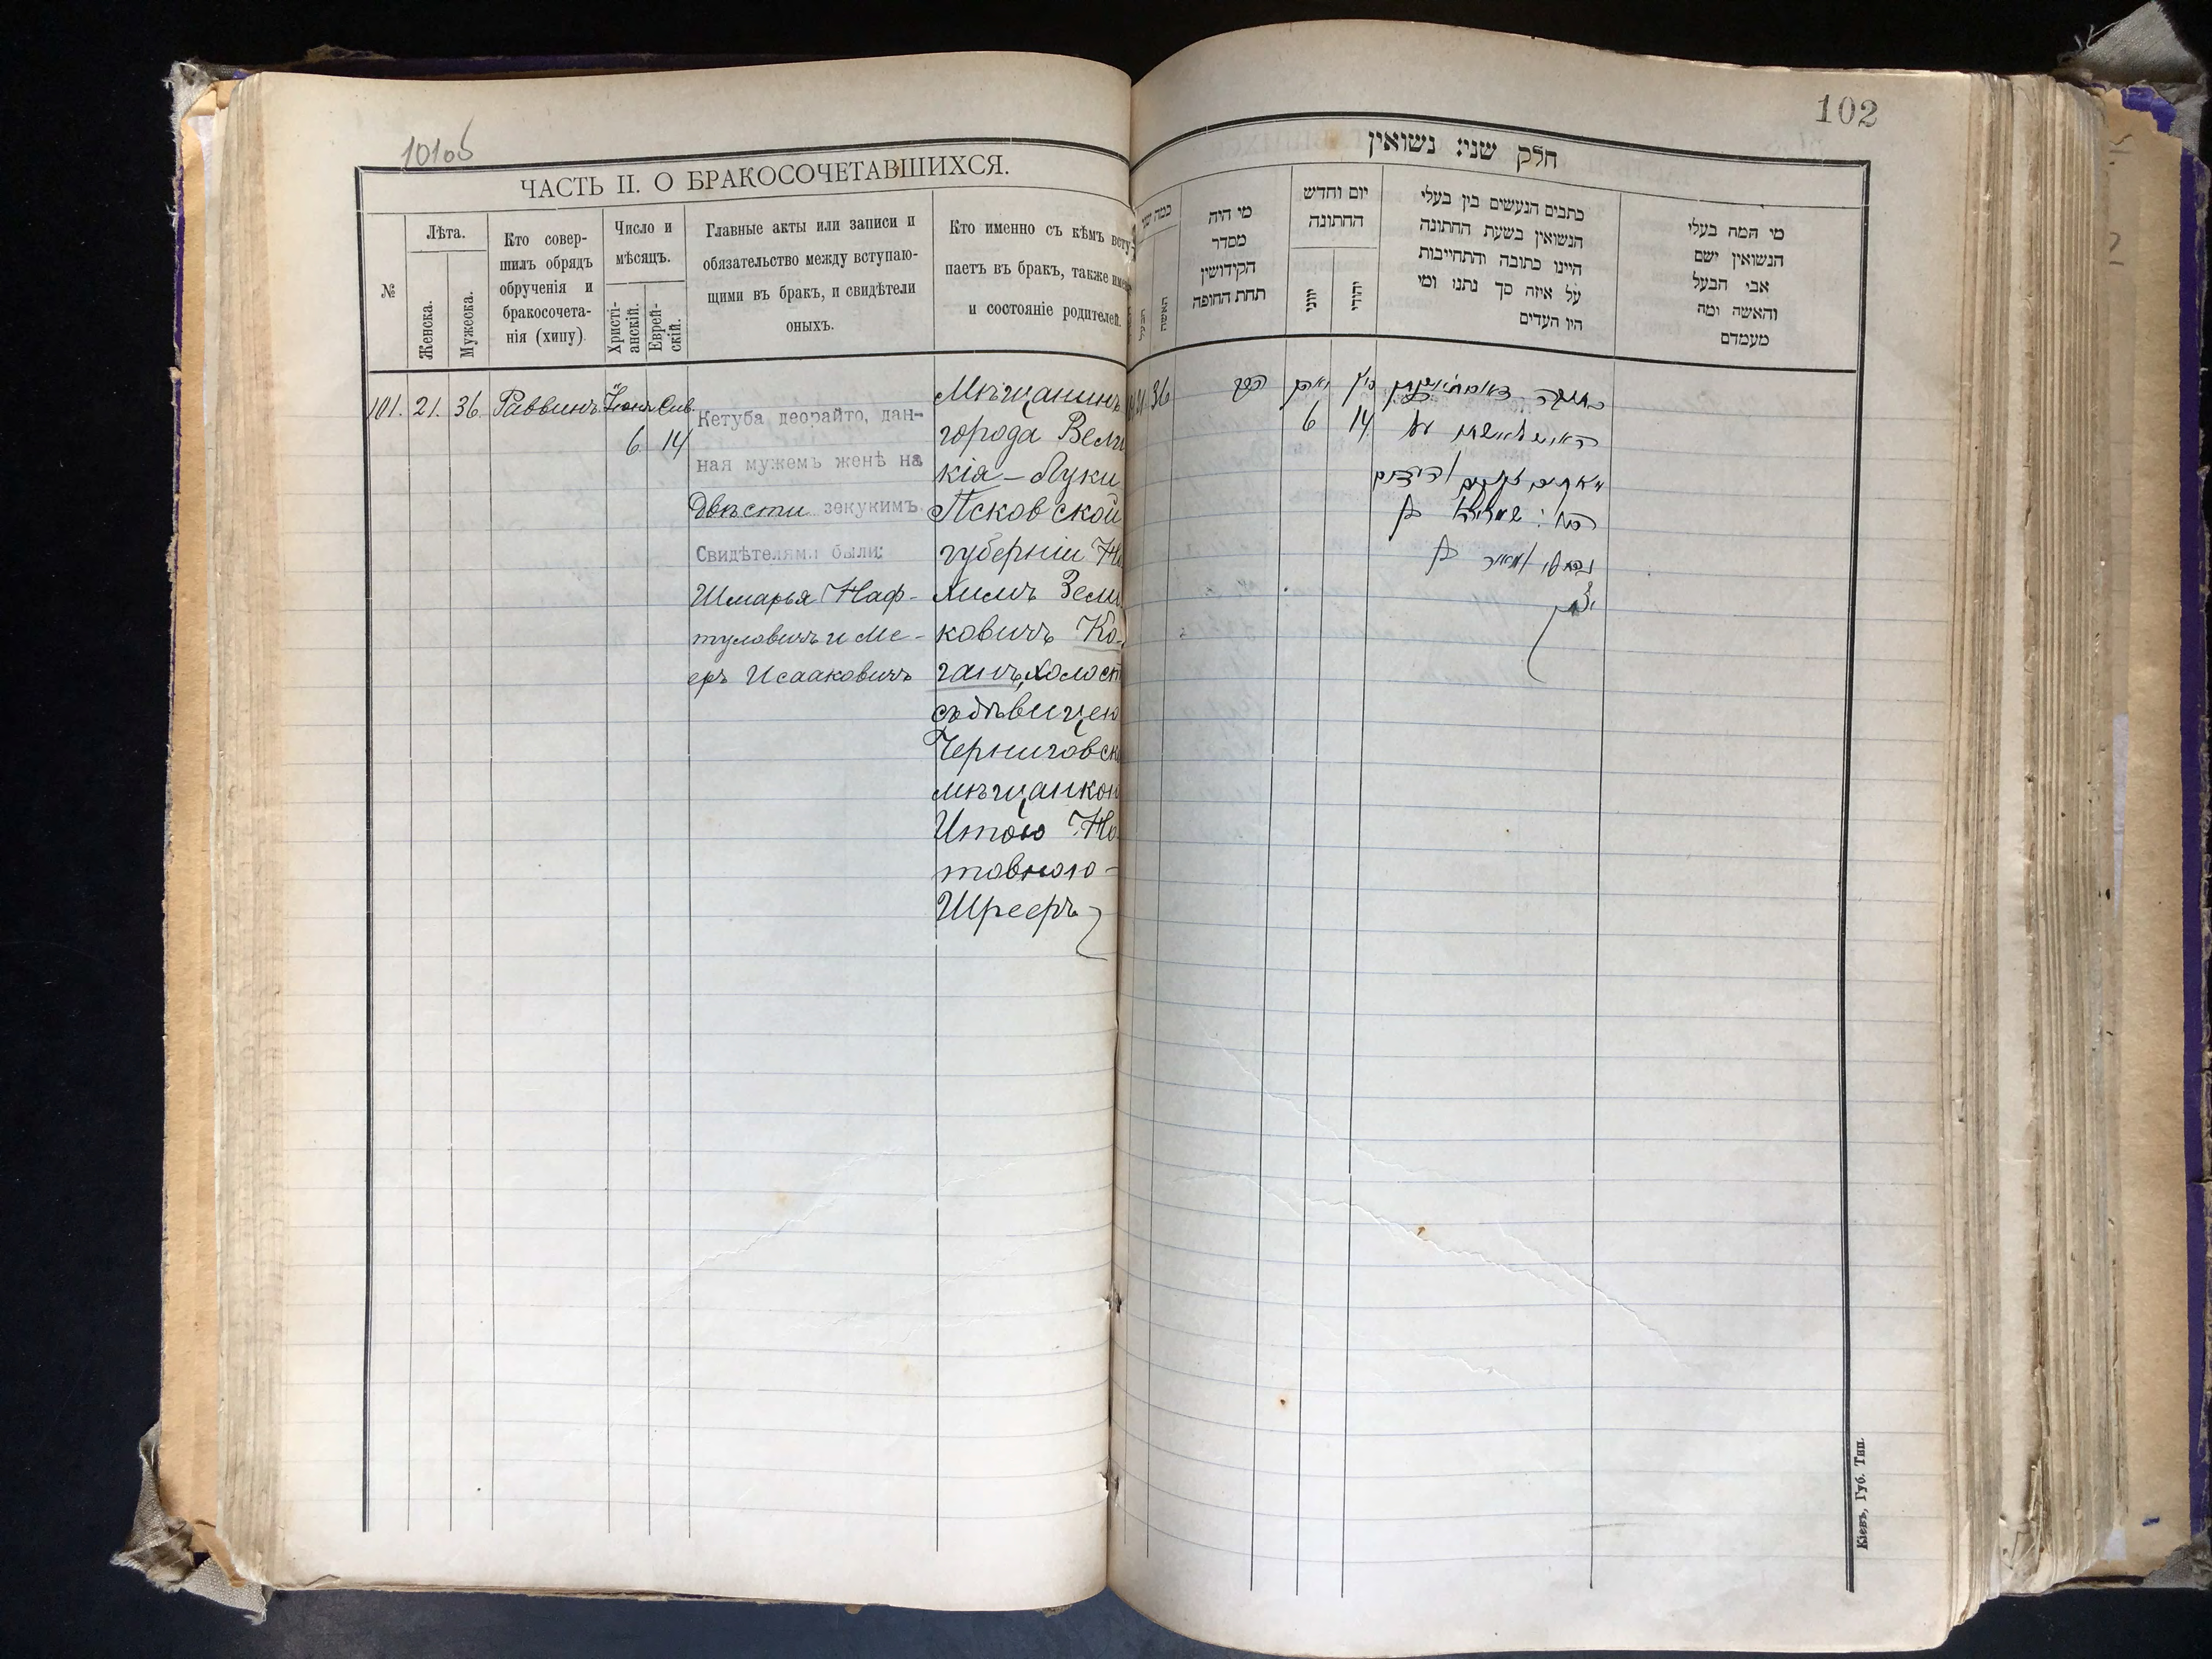 101об
102
ЧАСТЬ II. О БРАКОСОЧЕТАВШИХСЯ.
№
Лѣта.
Женска.
Мужеска.
Кто совер-
шилъ обрядъ
обрученія и
бракосочета-
нія (хипу)
Число и
мѣсяцъ.
Христі-
анскій.
Еврей-
скій.
Главные акты или записи и
обязательство между вступаю-
щими въ бракъ, и свидѣтели
оныхъ.
Кто именно съ кѣмъ всту-
паетъ въ бракъ, также имен
и состояніе родителей.
101.
21.
36
Раввинъ
Іюня
6
Сив.
14
Кетуба деорайто, дан-
ная мужемъ женѣ на
Двѣсти зекукимъ
Свидѣтелями были:
Шмарья Наф-
туловичъ и Ме-
еръ Исааковичъ
Мѣщанинъ
города Вели
кія-Луки
Псковской
губерніи Но
химъ Зели
ковичъ Ко-
ганъ, холост
съ дѣвицею
Черниговск
мѣщанкой
Итою Но
товною-
Шрееръ
חלק שני: נשואין
כמה שני
הבעל
האשה
מי היה
מסדר
הקידושין
תחת החופה
יום וחדש
החתונה
יווני
יהודי
כתבים הנעשים בין בעלי
הנשואין בשעת החתונה
היינו כתובה והתחייבות
על איזה סך נתנו ומי
היו העדים
מי המה בעלי
הנשואין ושם
אבי הבעל
והאשה ומה
מעמדם
21
36
הרב
יוני
6
סיון
14
כתובה דאורייתא
מאתים זקוקים והעדים
היו: שמריה ב
נפתלי ומאיר ב
יצחק
Кіевъ, Губ. Тип.